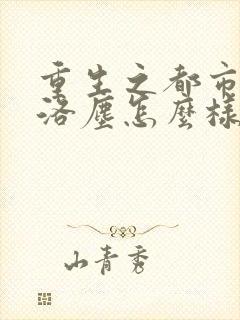 重生之都市
洛塵怎麼樣
山青秀